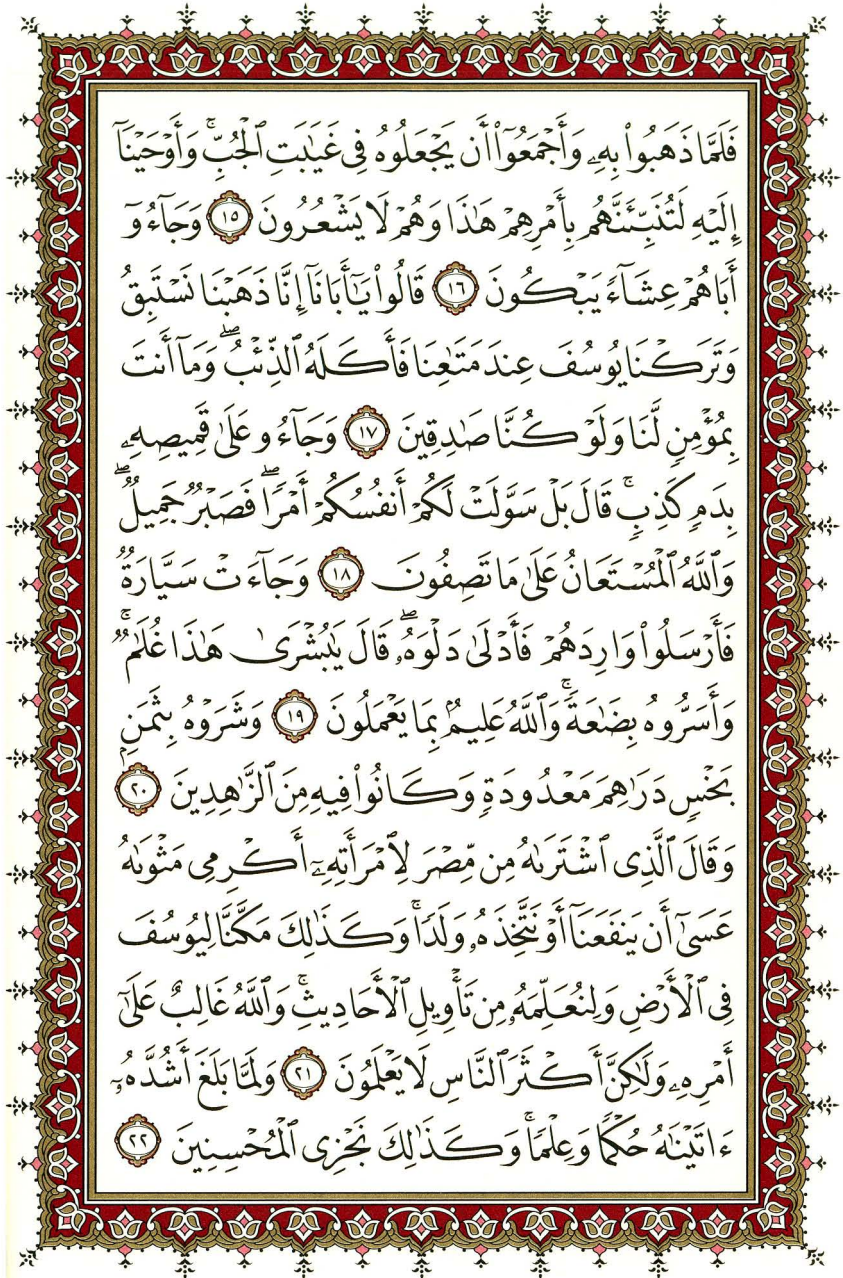 فَلَمَّا ذَهَبُوا۟ بِهِۦ وَأَجْمَعُوٓا۟ أَن يَجْعَلُوهُ فِى غَيَٰبَتِ ٱلْجُبِّ ۚ وَأَوْحَيْنَآ
إِلَيْهِ لَتُنَبِّئَنَّهُم بِأَمْرِهِمْ هَٰذَا وَهُمْ لَا يَشْعُرُونَ ١٥ وَجَآءُو
أَبَاهُمْ عِشَآءً يَبْكُونَ ١٦ قَالُوا۟ يَٰٓأَبَانَآ إِنَّا ذَهَبْنَا نَسْتَبِقُ
وَتَرَكْنَا يُوسُفَ عِندَ مَتَٰعِنَا فَأَكَلَهُ ٱلذِّئْبُ ۖ وَمَآ أَنتَ
بِمُؤْمِنٍ لَّنَا وَلَوْ كُنَّا صَٰدِقِينَ ١٧ وَجَآءُو عَلَىٰ قَمِيصِهِۦ
بِدَمٍ كَذِبٍ ۚ قَالَ بَلْ سَوَّلَتْ لَكُمْ أَنفُسُكُمْ أَمْرًا ۖ فَصَبْرٌ جَمِيلٌ ۖ
وَٱللَّهُ ٱلْمُسْتَعَانُ عَلَىٰ مَا تَصِفُونَ ١٨ وَجَآءَتْ سَيَّارَةٌ
فَأَرْسَلُوا۟ وَارِدَهُمْ فَأَدْلَىٰ دَلْوَهُۥ ۖ قَالَ يَٰبُشْرَىٰ هَٰذَا غُلَٰمٌ ۚ
وَأَسَرُّوهُ بِضَٰعَةً ۚ وَٱللَّهُ عَلِيمٌۢ بِمَا يَعْمَلُونَ ١٩ وَشَرَوْهُ بِثَمَنٍۭ
بَخْسٍ دَرَٰهِمَ مَعْدُودَةٍ وَكَانُوا۟ فِيهِ مِنَ ٱلزَّٰهِدِينَ ٢٠
وَقَالَ ٱلَّذِى ٱشْتَرَىٰهُ مِن مِّصْرَ لِٱمْرَأَتِهِۦٓ أَكْرِمِى مَثْوَىٰهُ
عَسَىٰٓ أَن يَنفَعَنَآ أَوْ نَتَّخِذَهُۥ وَلَدًا ۚ وَكَذَٰلِكَ مَكَّنَّا لِيُوسُفَ
فِى ٱلْأَرْضِ وَلِنُعَلِّمَهُۥ مِن تَأْوِيلِ ٱلْأَحَادِيثِ ۚ وَٱللَّهُ غَالِبٌ عَلَىٰٓ
أَمْرِهِۦ وَلَٰكِنَّ أَكْثَرَ ٱلنَّاسِ لَا يَعْلَمُونَ ٢١ وَلَمَّا بَلَغَ أَشُدَّهُۥٓ
ءَاتَيْنَٰهُ حُكْمًا وَعِلْمًا ۚ وَكَذَٰلِكَ نَجْزِى ٱلْمُحْسِنِينَ ٢٢